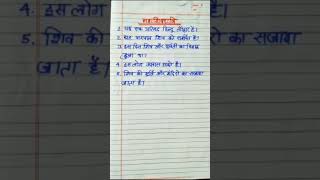 4. इस लोग
5. शिव की
जाता है।
का सजाया
1. यह एक प्रसिद्ध हिन्दू त्यौहार है।
2. यह भगवान शिव को समर्पित है।
3. इस दिन शिव और पार्वती का विवाह
हुआ था।
4. इस लोग उपवास रखते है।
5. शिव की मूर्ति और मंदिरो का सजाया
जाता है।